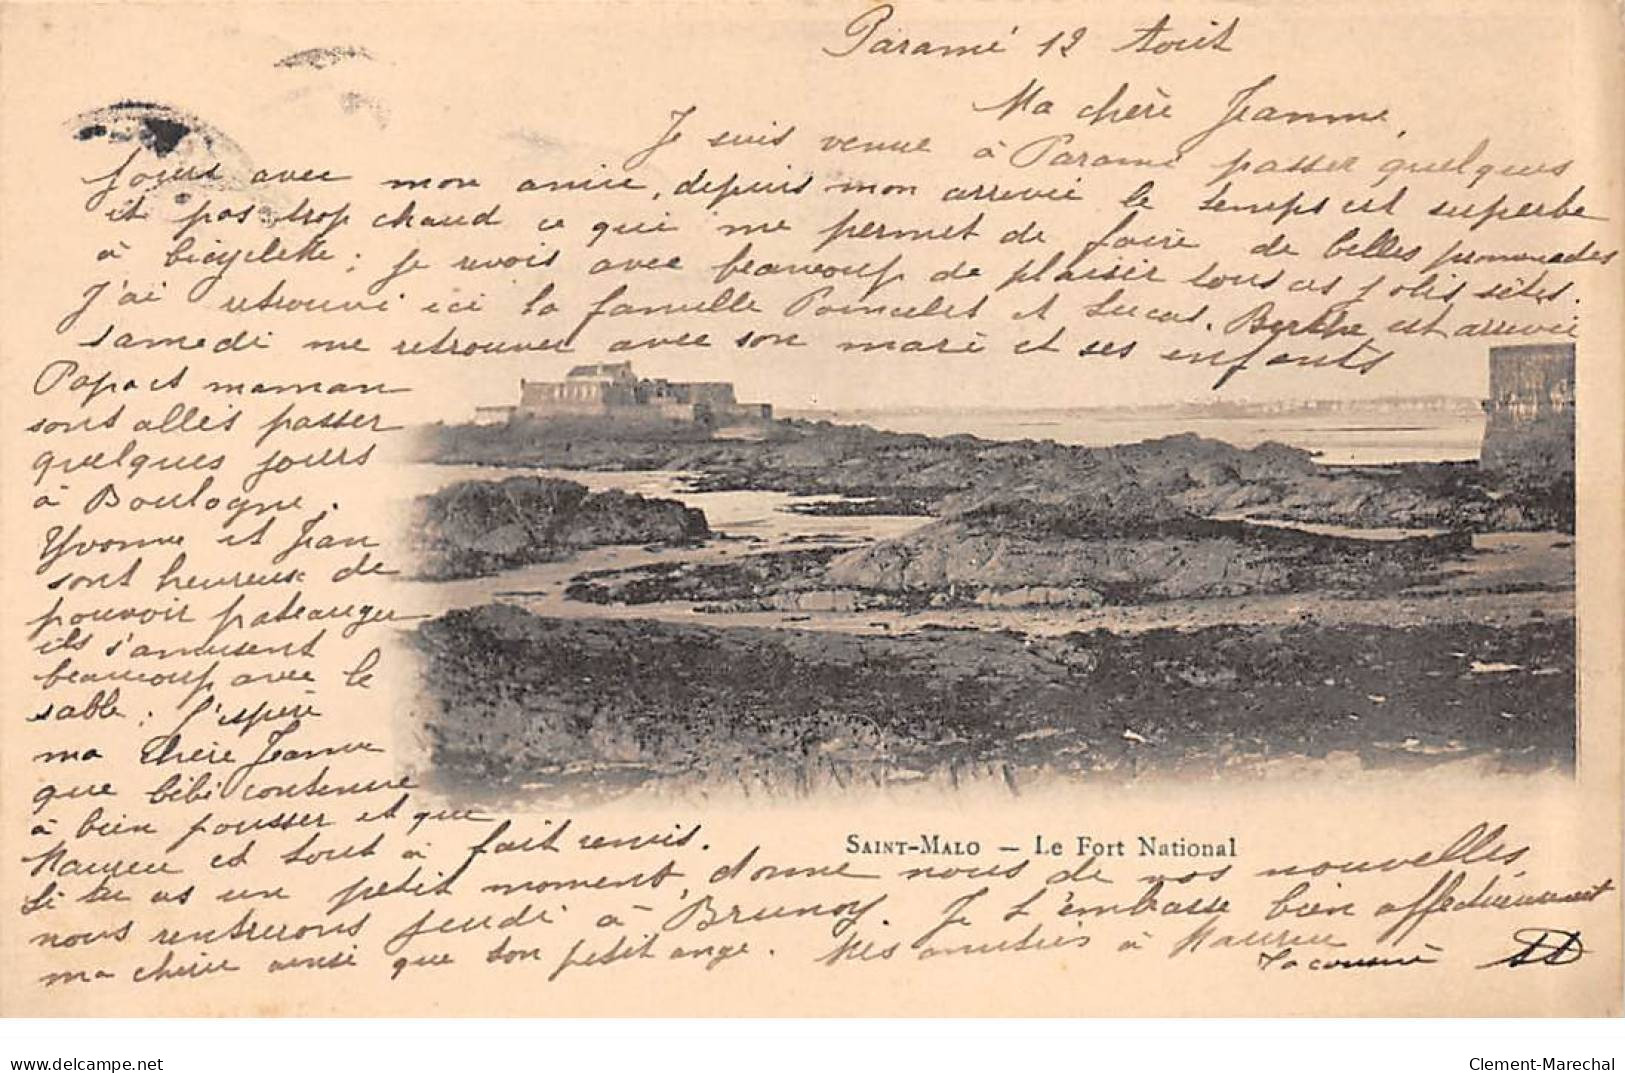 Paramé 12 Août
Ma chère Jeanne,
Je suis venue à Paramé passer quelques
jours avec mon amie, depuis mon arrivée le temps est superbe
et pas trop chaud ce qui me permet de faire de belles promenades
à bicyclette ; je revois avec beaucoup de plaisir tous ces jolis sites.
J'ai retrouvé ici la famille Poincelet et Lucas. Berthe est arrivée
samedi me retrouver avec son mari et ses enfants
Papa et maman
sont allés passer
quelques jours
à Boulogne.
Yvonne et Jean
sont heureux de
pouvoir patauger
ils s'amusent
beaucoup avec le
sable ; j'espère
ma chère Jeanne
que bébé continue
à bien pousser et que
Maurice et tout à fait remis.
SAINT-MALO — Le Fort National
Si tu as un petit moment, donne nous de vos nouvelles,
nous rentrerons jeudi à Brunoy. Je t'embrasse bien affectueusement
ma chérie ainsi que ton petit ange. Mes amitiés à Maurice
Ta cousine
www.delcampe.net
Clement-Marechal